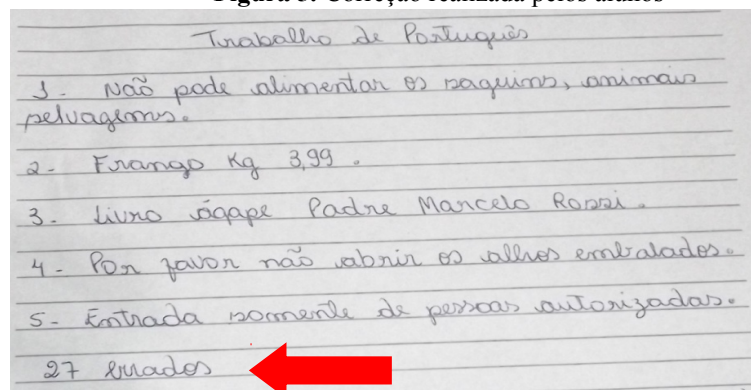 Figura 3. Correção realizada pelos alunos
Trabalho de Português
1- Não pode alimentar os saguins, animais
selvagems.
2- Frango Kg 3,99.
3- Livro ágape Padre Marcelo Rossi.
4- Por favor não abrir os alhos embalados.
5- Entrada somente de pessoas autorizadas.
27 errados